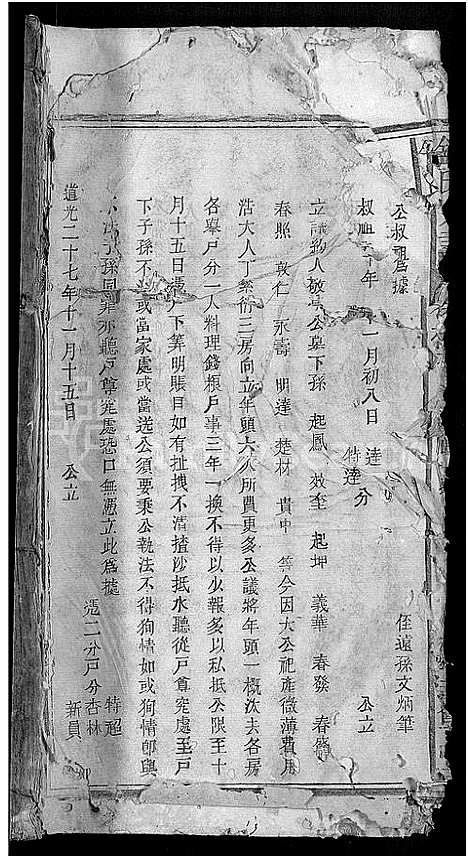 公叔祖爲據 侄遠孫文炳筆
叔祖 年 十一月初八日 達 特達 分 公立
立議約人敬 公墓下孫 起鳳 效奎 起坤 義華 春發 春
春照 敦仁 永壽 明達 楚材 貴中 等今因大公祀產微薄費用
浩大人丁蕃衍三房向立年頭六人所費更多公議將年頭一概汰去各房
各舉戶分一人料理錢粮戶事三年一換不得以少報多以私抵公限至十
月十五日 戶下筭明賬目如有扯拽不清揸沙抵水聽從戶尊究處至戶
下子孫不 或當家處或當送公須要秉公執法不得狥情如或狥情郎與
不法子孫同罪亦聽戶尊究處恐口無憑立此爲據
憑二分戶分 特超 杏林 新員
道光二十七年十一月十五日 公立